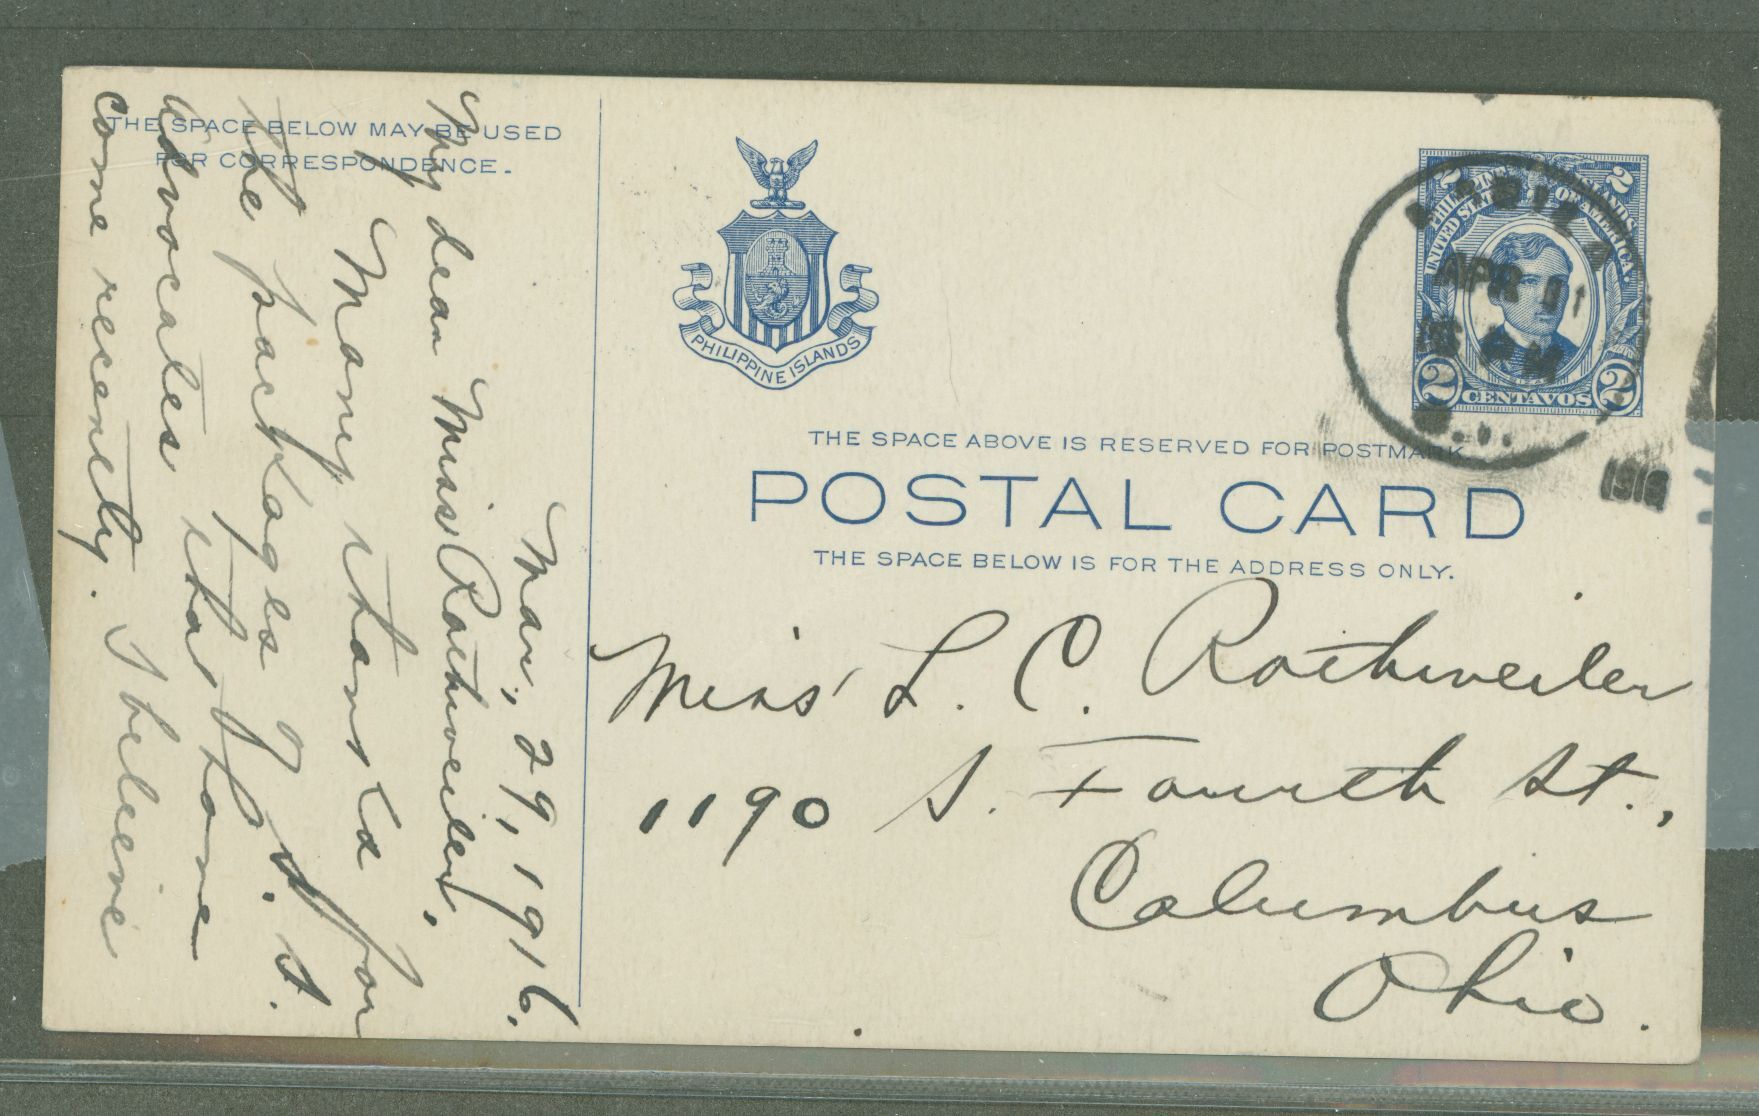 THE SPACE BELOW MAY BE USED
FOR CORRESPONDENCE.
Mar, 29, 1916.
My dear Miss Rothweiler,
Many thanks for
the packages of S. S.
Advocates that have
come recently. I believe
PHILIPPINE ISLANDS
2 2
PHILIPPINE ISLANDS
UNITED STATES OF AMERICA
RIZAL
2 CENTAVOS 2
APR 01
1916
THE SPACE ABOVE IS RESERVED FOR POSTMARK
POSTAL CARD
THE SPACE BELOW IS FOR THE ADDRESS ONLY.
Miss L. C. Rothweiler
1190 S. Fourth St.,
Columbus
Ohio.